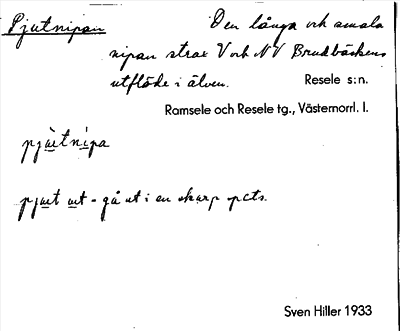 Pjutnipan Den långa och smala
nipan strax V och NV Brudbäckens
utflöde i älven. Resele s:n.
Ramsele och Resele tg., Västernorrl. l.
pjùtnìpa
pjut ut - gå ut i en skarp spets.
Sven Hiller 1933